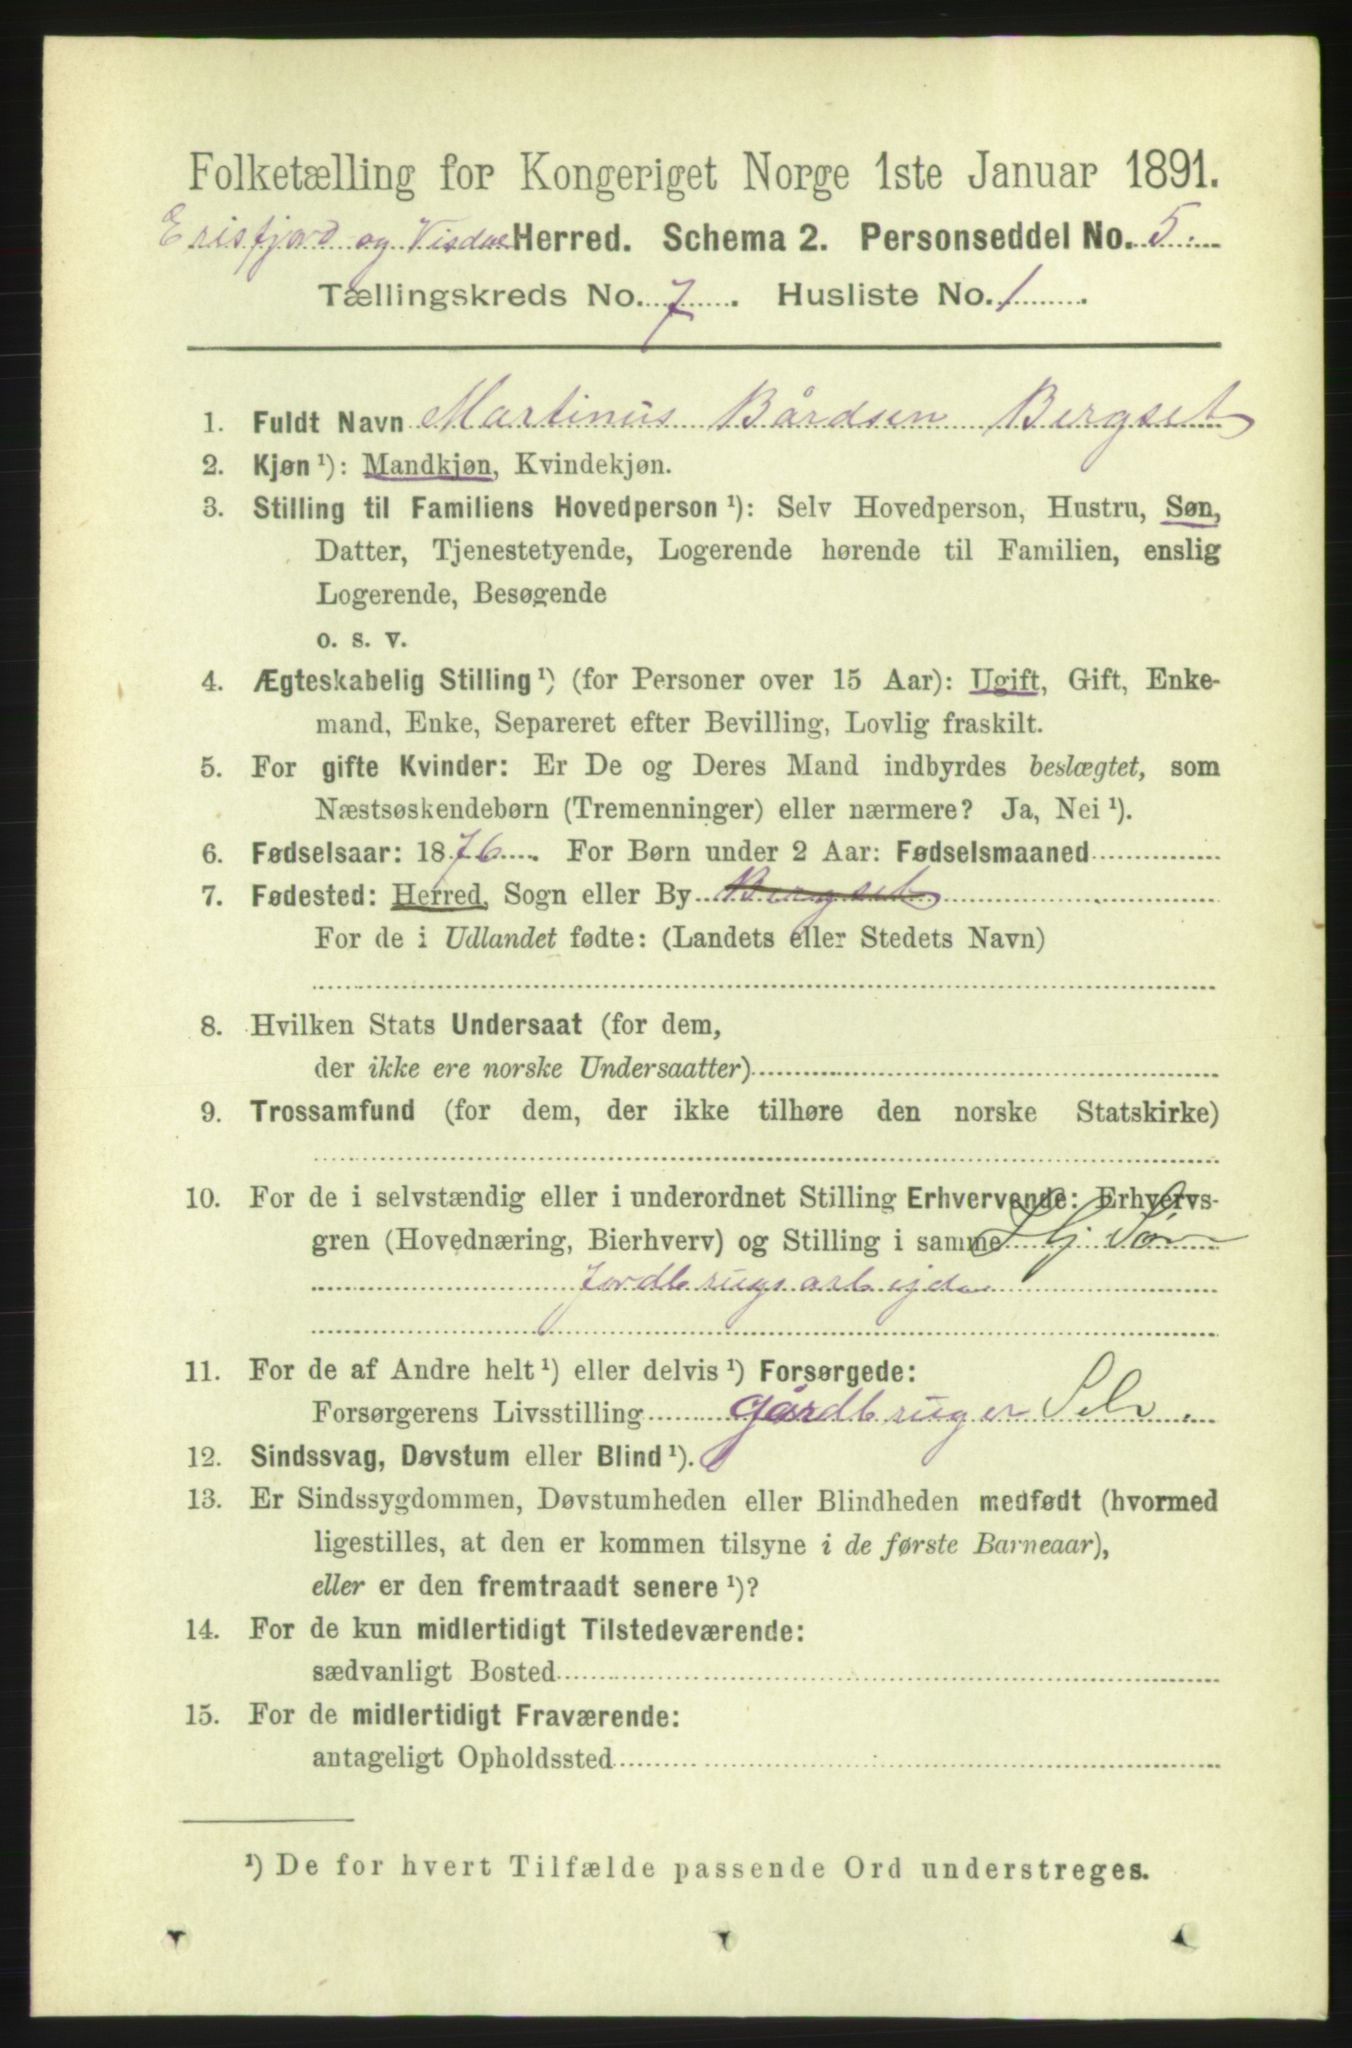 Folketælling for Kongeriget Norge 1ste Januar 1891.
Erisfjord og Visdal Herred. Schema 2. Personseddel No. 5.
Tællingskreds No. 7. Husliste No. 1.
1. Fuldt Navn Martinus Bårdsen Bergset
2. Kjøn ¹): Mandkjøn, Kvindekjøn.
3. Stilling til Familiens Hovedperson ¹): Selv Hovedperson, Hustru, Søn,
Datter, Tjenestetyende, Logerende hørende til Familien, enslig
Logerende, Besøgende
o. s. v.
4. Ægteskabelig Stilling ¹) (for Personer over 15 Aar): Ugift, Gift, Enke-
mand, Enke, Separeret efter Bevilling, Lovlig fraskilt.
5. For gifte Kvinder: Er De og Deres Mand indbyrdes beslægtet, som
Næstsøskendebørn (Tremenninger) eller nærmere? Ja, Nei ¹).
6. Fødselsaar: 1876. For Børn under 2 Aar: Fødselsmaaned
7. Fødested: Herred, Sogn eller By Bergset
For de i Udlandet fødte: (Landets eller Stedets Navn)
8. Hvilken Stats Undersaat (for dem,
der ikke ere norske Undersaatter)
9. Trossamfund (for dem, der ikke tilhøre den norske Statskirke)
10. For de i selvstændig eller i underordnet Stilling Erhvervende: Erhvervs-
gren (Hovednæring, Bierhverv) og Stilling i samme Søn
Jordbrugsarbejde
11. For de af Andre helt ¹) eller delvis ¹) Forsørgede:
Forsørgerens Livsstilling Gårdbruger Selv.
12. Sindssvag, Døvstum eller Blind ¹).
13. Er Sindssygdommen, Døvstumheden eller Blindheden medfødt (hvormed
ligestilles, at den er kommen tilsyne i de første Barneaar),
eller er den fremtraadt senere ¹)?
14. For de kun midlertidigt Tilstedeværende:
sædvanligt Bosted
15. For de midlertidigt Fraværende:
antageligt Opholdssted
¹) De for hvert Tilfælde passende Ord understreges.